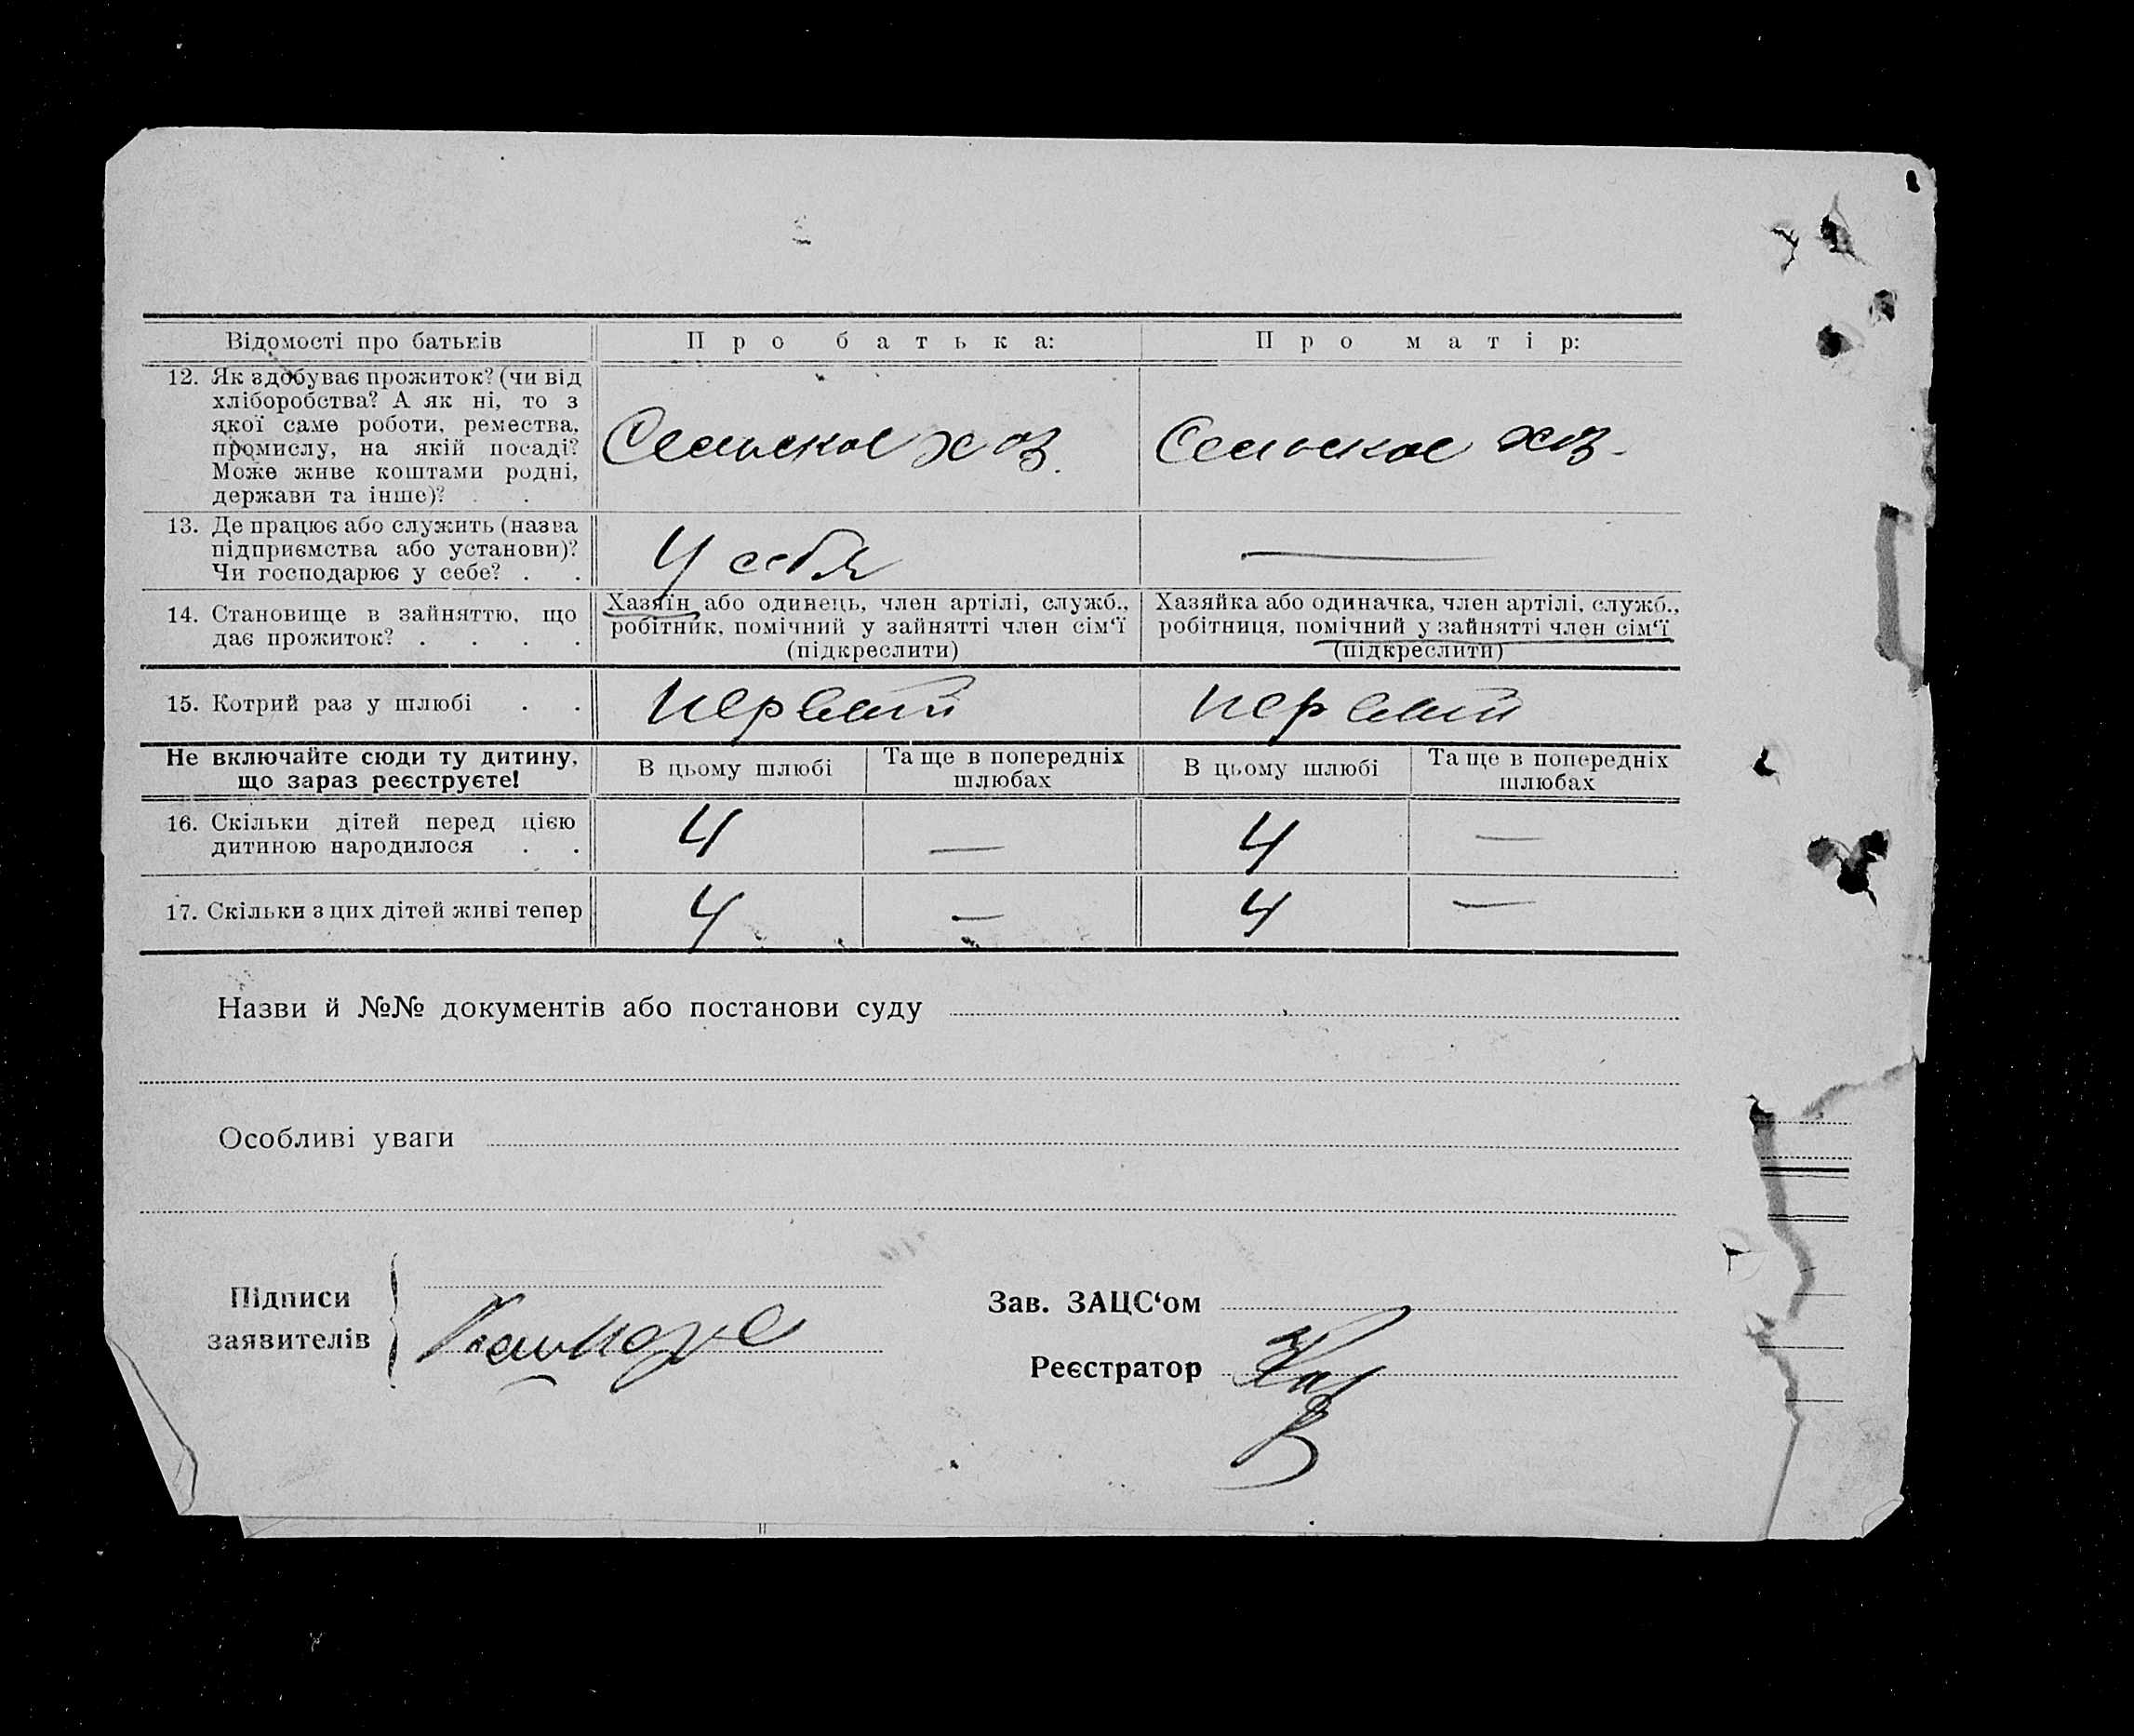 Відомості про батьків
Про батька:
Про матір:
12. Як здобуває прожиток? (чи від
хліборобства? А як ні, то з
якої саме роботи, ремества,
промислу, на якій посаді?
Може живе коштами родні,
держави та інше)? . .
Сельское хоз.
Сельское хоз.
13. Де працює або служить (назва
підприємства або установи)?
Чи господарює у себе? . .
У себя
—
14. Становище в зайняттю, що
дає прожиток? . . . .
Хазяїн або одинець, член артілі, служб.,
робітник, помічний у зайнятті член сім‘ї
(підкреслити)
Хазяйка або одиначка, член артілі, служб.,
робітниця, помічний у зайнятті член сім‘ї
(підкреслити)
15. Котрий раз у шлюбі . .
первый
первый
Не включайте сюди ту дитину,
що зараз реєструєте!
В цьому шлюбі
Та ще в попередніх
шлюбах
В цьому шлюбі
Та ще в попередніх
шлюбах
16. Скільки дітей перед цією
дитиною народилося . .
4
—
4
—
17. Скільки з цих дітей живі тепер
4
—
4
—
Назви й №№ документів або постанови суду
Особливі уваги
Підписи
заявителів
Зав. ЗАЦС‘ом
Реєстратор